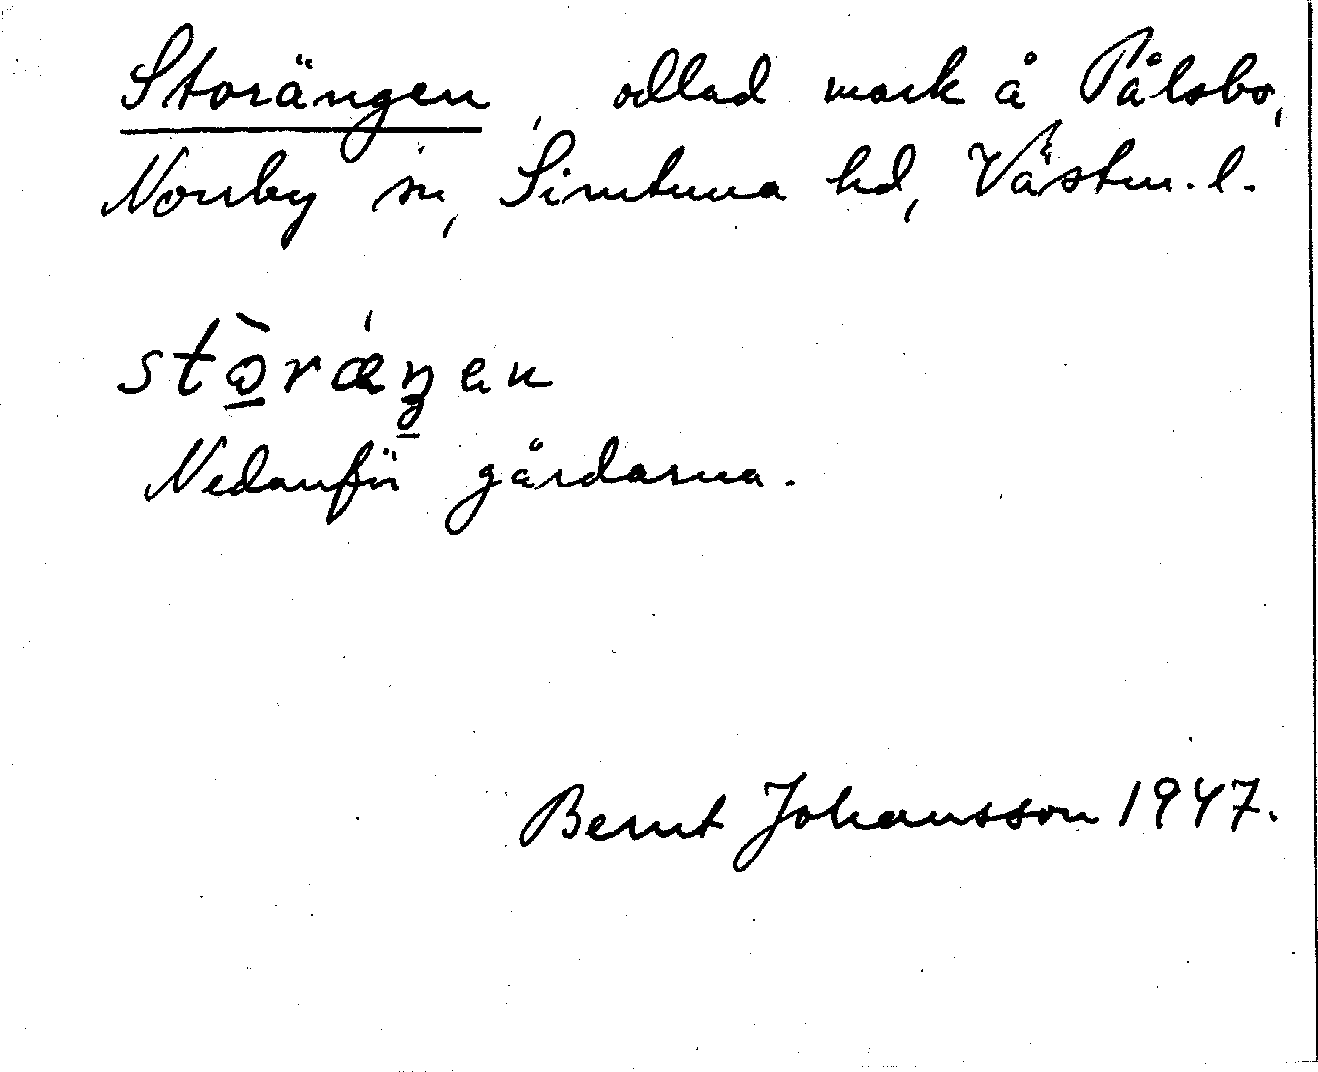 Storängen, odlad mark å Pålsbo,
Norrby sn, Simtuna hd, Västm. l.
stὼ̠ræ̍ŋ̠en
Nedanför gårdarna.
Bernt Johansson 1947.